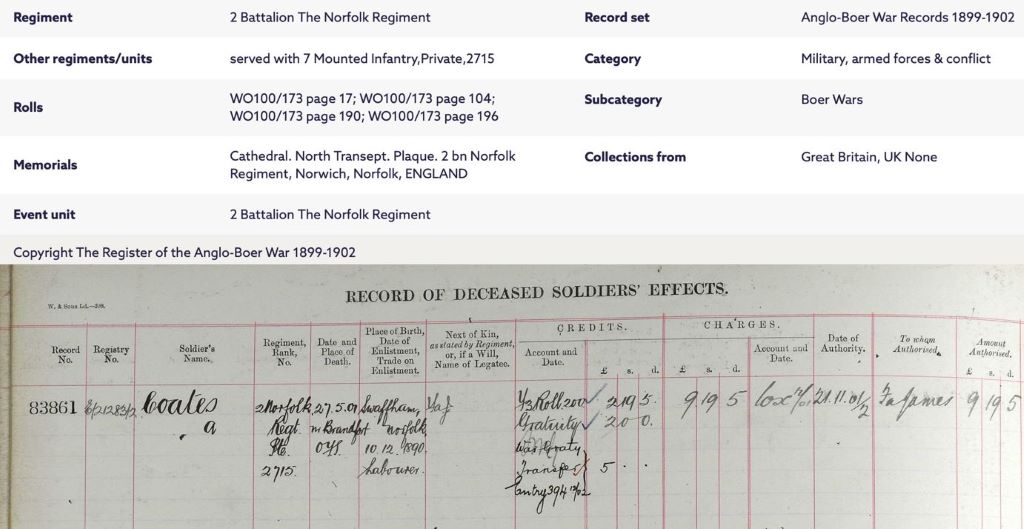 Regiment 2 Battalion The Norfolk Regiment Record set Anglo-Boer War Records 1899-1902
Other regiments/units served with 7 Mounted Infantry,Private,2715 Category Military, armed forces & conflict
Rolls WO100/173 page 17; WO100/173 page 104;
WO100/173 page 190; WO100/173 page 196
Subcategory Boer Wars
Memorials Cathedral. North Transept. Plaque. 2 bn Norfolk
Regiment, Norwich, Norfolk, ENGLAND
Collections from Great Britain, UK None
Event unit 2 Battalion The Norfolk Regiment
Copyright The Register of the Anglo-Boer War 1899-1902
W. & Sons Ld.
RECORD OF DECEASED SOLDIERS' EFFECTS.
Record
No.
Registry
No.
Soldier's
Name.
Regiment,
Rank,
No.
Date and
Place of
Death.
Place of Birth,
Date of
Enlistment,
Trade on
Enlistment.
Next of Kin,
as stated by Regiment,
or, if a Will,
Name of Legatee.
CREDITS.
Account and
Date.
£ s. d.
CHARGES.
£ s. d.
Account and
Date.
Date of
Authority.
To whom
Authorised.
Amount
Authorised.
£ s. d.
83861
Coates
a
2 Norfolk
Regt
Pte
2715
27.5.01
nr Brandfort
Swaffham,
Norfolk,
10.12.1890.
Labourer.
Roll
Gratuity
War Graty
Transfer
Entry 394
2 19 5.
2 0 0.
5 . .
9 19 5
21.11.01
Fa James
9 19 5